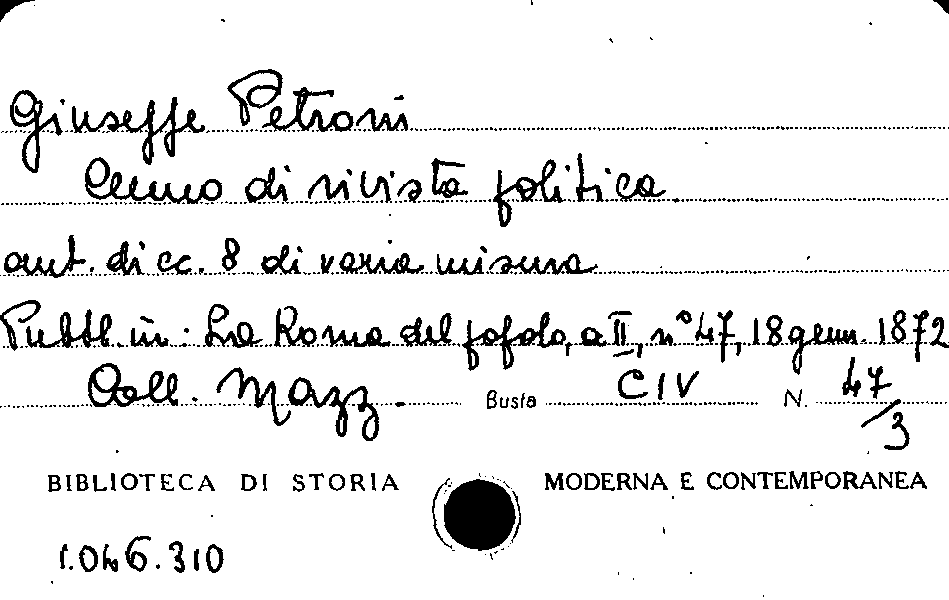 Giuseppe Petroni
Cenno di rivista politica
aut. di cc. 8 di varia misura
Pubbl. in: La Roma del popolo, a II, n° 47, 18 genn. 1872
Coll. Mazz. Busta CIV N. 47/3
BIBLIOTECA DI STORIA MODERNA E CONTEMPORANEA
1.046.310